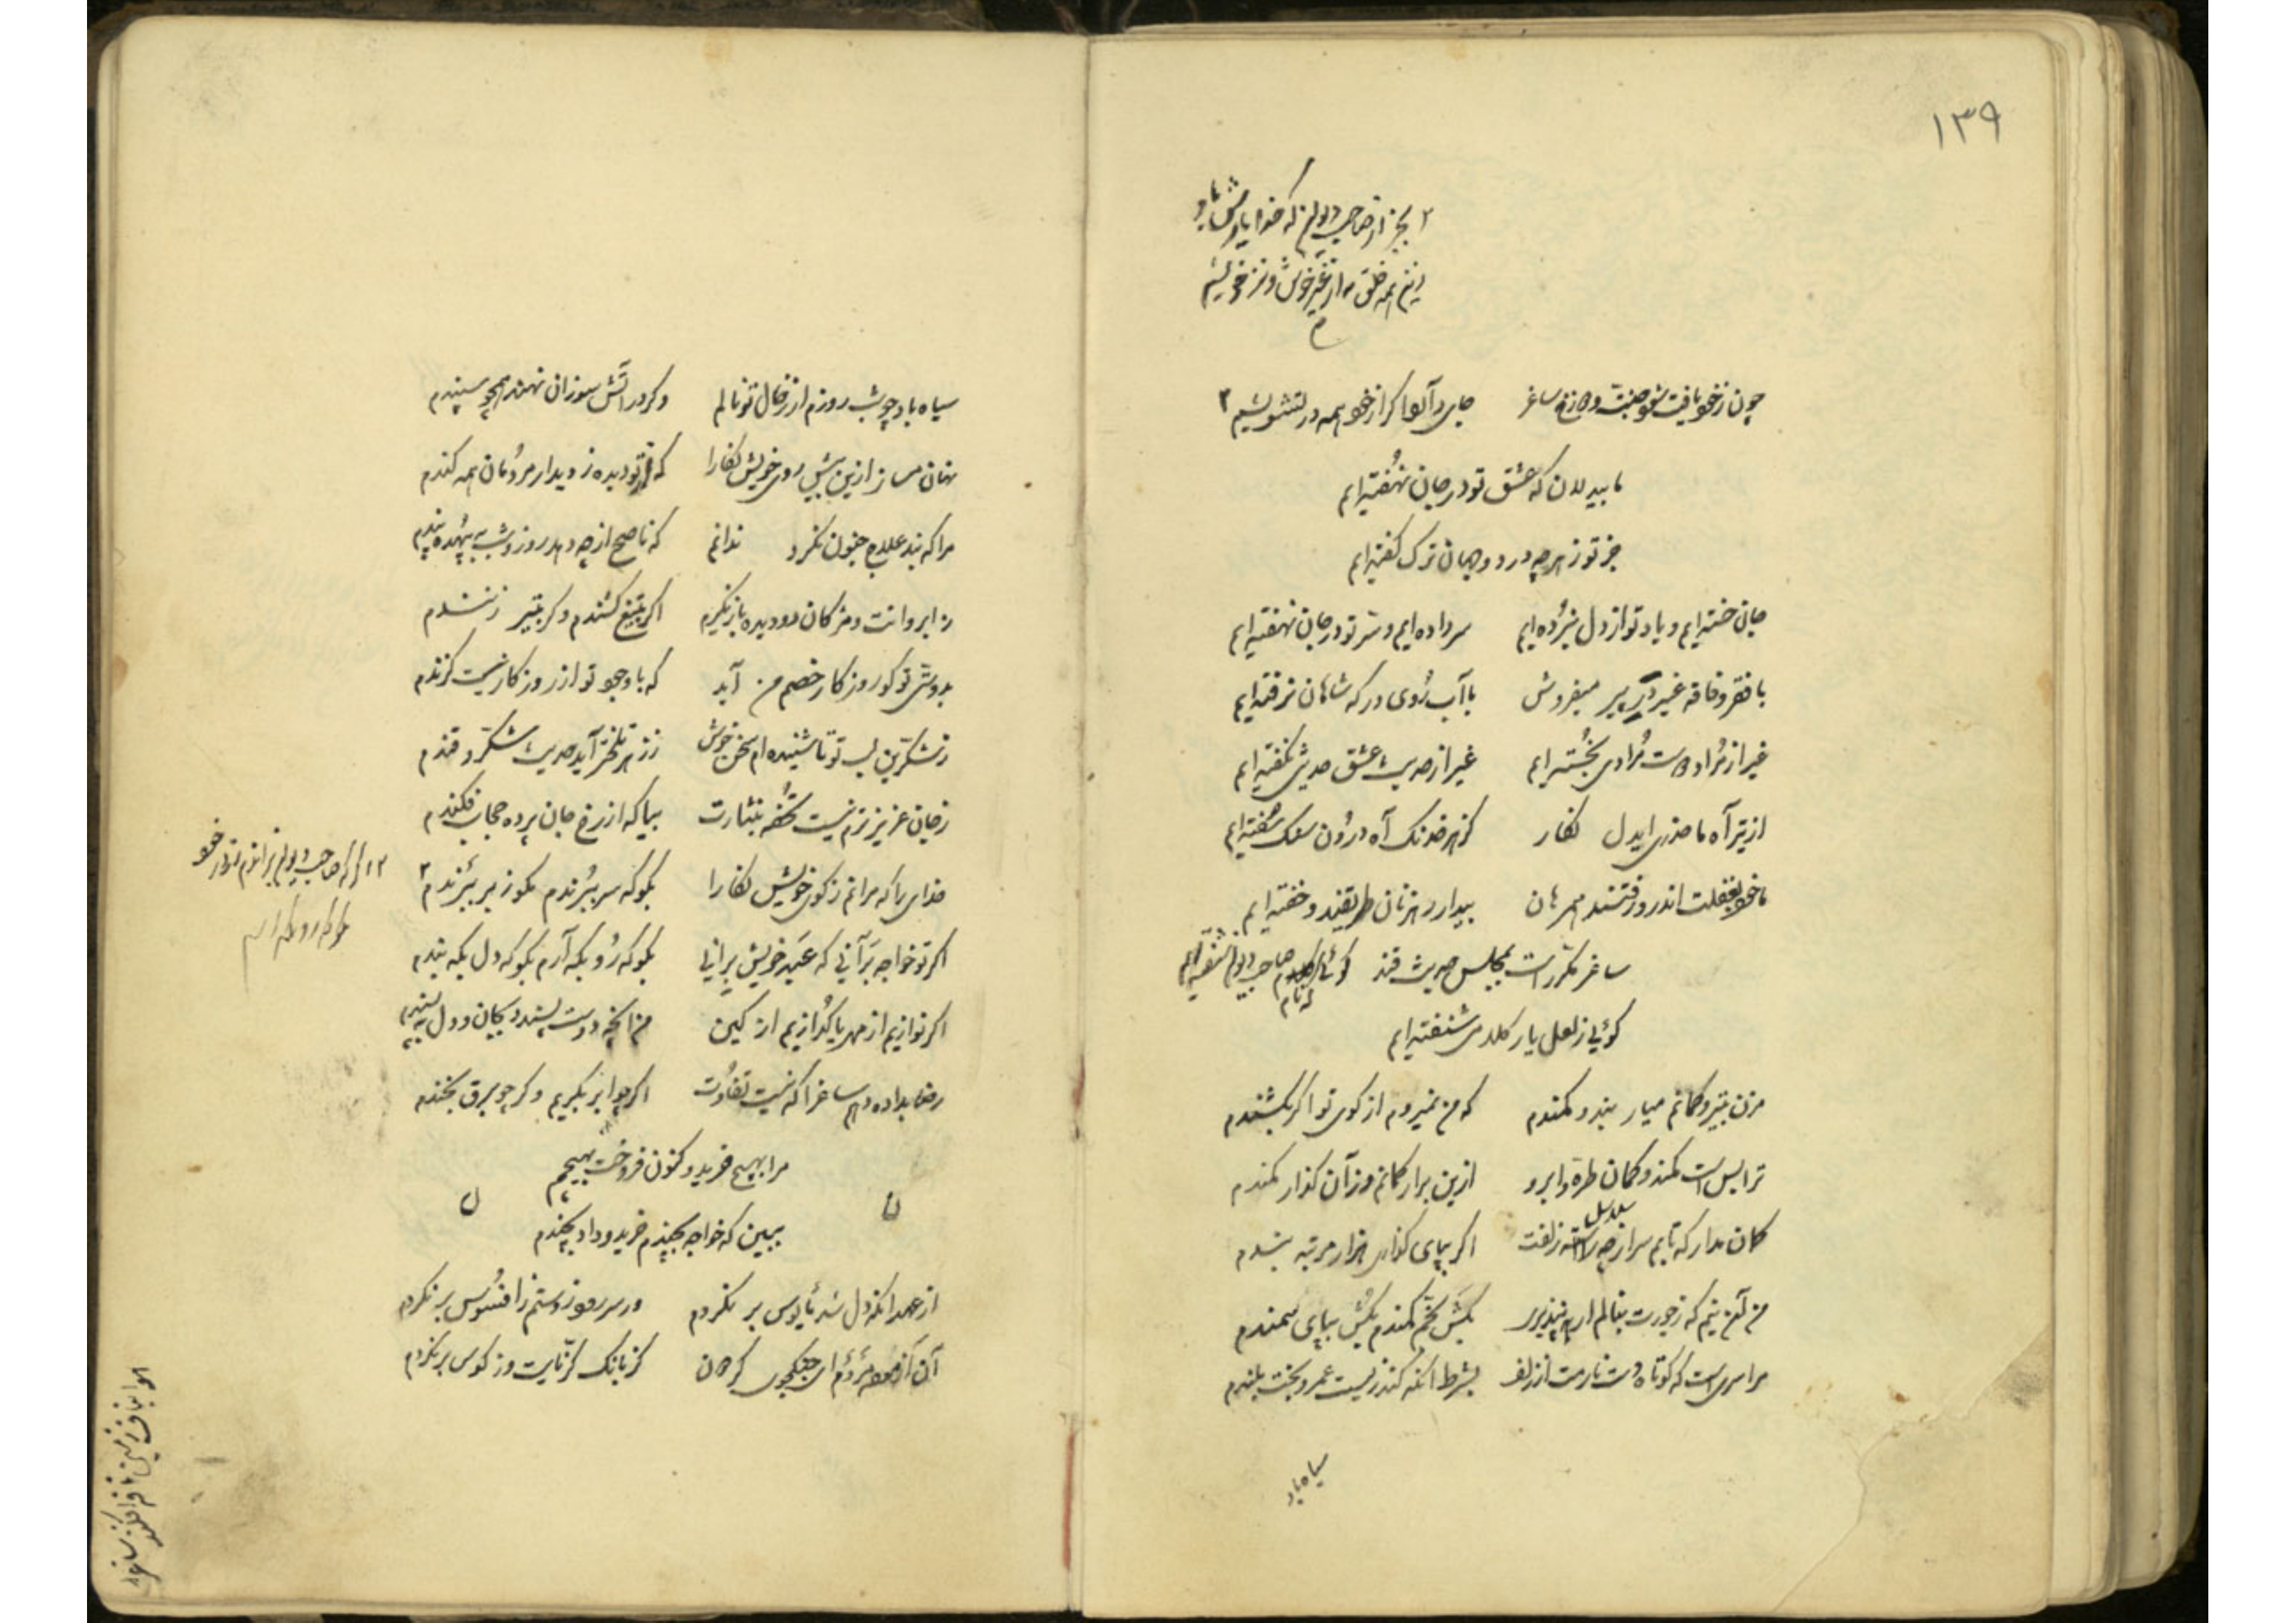 ۱۳۹
۲ بجز از صاحب دیوان که خدا یارش باد
زین همه خلق نه از غیر خوش و نز خویشیم
چون ز خود یافت شود جنت و دوزخ ساغر جای دارد اگر از خود همه در تشویشیم ۲
ما بیدلان که عشق تو در جان نهفته‌ایم
جز تو ز هرچه در دو جهان ترک گفته‌ایم
جان خسته‌ایم و یاد تو از دل نبرده‌ایم سر داده‌ایم و سر تو در جان نهفته‌ایم
با فقر و فاقه غیر در پیر میفروش با آب روی درگه شاهان نرفته‌ایم
غیر از مراد دوست مرادی نجسته‌ایم غیر از حدیث عشق حدیثی نگفته‌ایم
از تیر آه ما حذری ایدل نگار کز هر خدنگ آه درون سنگ سفته‌ایم
ما خود بغفلت اندر و رفتند همرهان بیدار رهزنان طریقند و خفته‌ایم
ساغر مکرر است بمجلس حدیث قند گوئی کلام صاحب دیوان شنفته‌ایم
گوئی ز لعل یار کلامی شنفته‌ایم
مزن بتیر و کمانم میار بند و کمندم که من نمیروم از کوی تو اگر بکشندم
ترا بس است کمند و کمان طره و ابرو ازین برار کمانم وز آن گذار کمندم
گمان مدار که تابم سر از سلسله زلفت اگر بپای گذاری هزار مرتبه بندم
من آن نیم که ز جورت بنالم ار نپذیری بکش بخم کمندم بکش بپای سمندم
مرا سری است که کوتاه دست نارمت از زلف بشرط آنکه کند زیست عمر و بخت بلندم
سیاه باد
سیاه باد چو شب روزم ار ز خال تو نالم و گر در آتش سوزان نهند همچو سپندم
نهان مساز ازین بیش روی خویش نگارا که از تو دیده ز دیدار مردمان همه کندم
مرا که بند علاج جنون نکرد ندانم که ناصح از چه دهد روز و شب به بیهده پندم
ز ابروانت و مژگان دو دیده باز نگیرم اگر بتیغ کشندم و گر بتیر زنندم
بدوستی تو گو روزگار خصم من آید که با وجود تو از روزگار نیست گزندم
ز شکرین لب تو تا شنیده‌ام سخن خوش ز زهر تلختر آید حدیث شکر و قندم
ز جان عزیزترم نیست تحفه بنثارت بیا که از رخ جان پرده حجاب فکندم
خدای را که مرانم ز کوی خویش نگارا بگو که سر ببرندم مگو ز بر ببرندم ۲
اگر تو خواجه برآنی که عبد خویش برانی بگو که رو بکه آرم بگو که دل بکه بندم
اگر نوازیم از مهر یا گدازیم از کین من آنچه دوست پسندد بجان و دل بپسندم
رضا بداده دهم ساغرا که نیست تفاوت اگر چو ابر بگریم و گر چو برق بخندم
مرا بهیچ خرید و کنون فروخت بهیچم
ببین که خواجه بچندم خرید و داد بچندم
از عهد آنکه دل شد مایوس بر نگردم ور سر رود ز دستم ز افسوس بر نگردم
کز بانگ کرنایت وز کوس بر نگردم